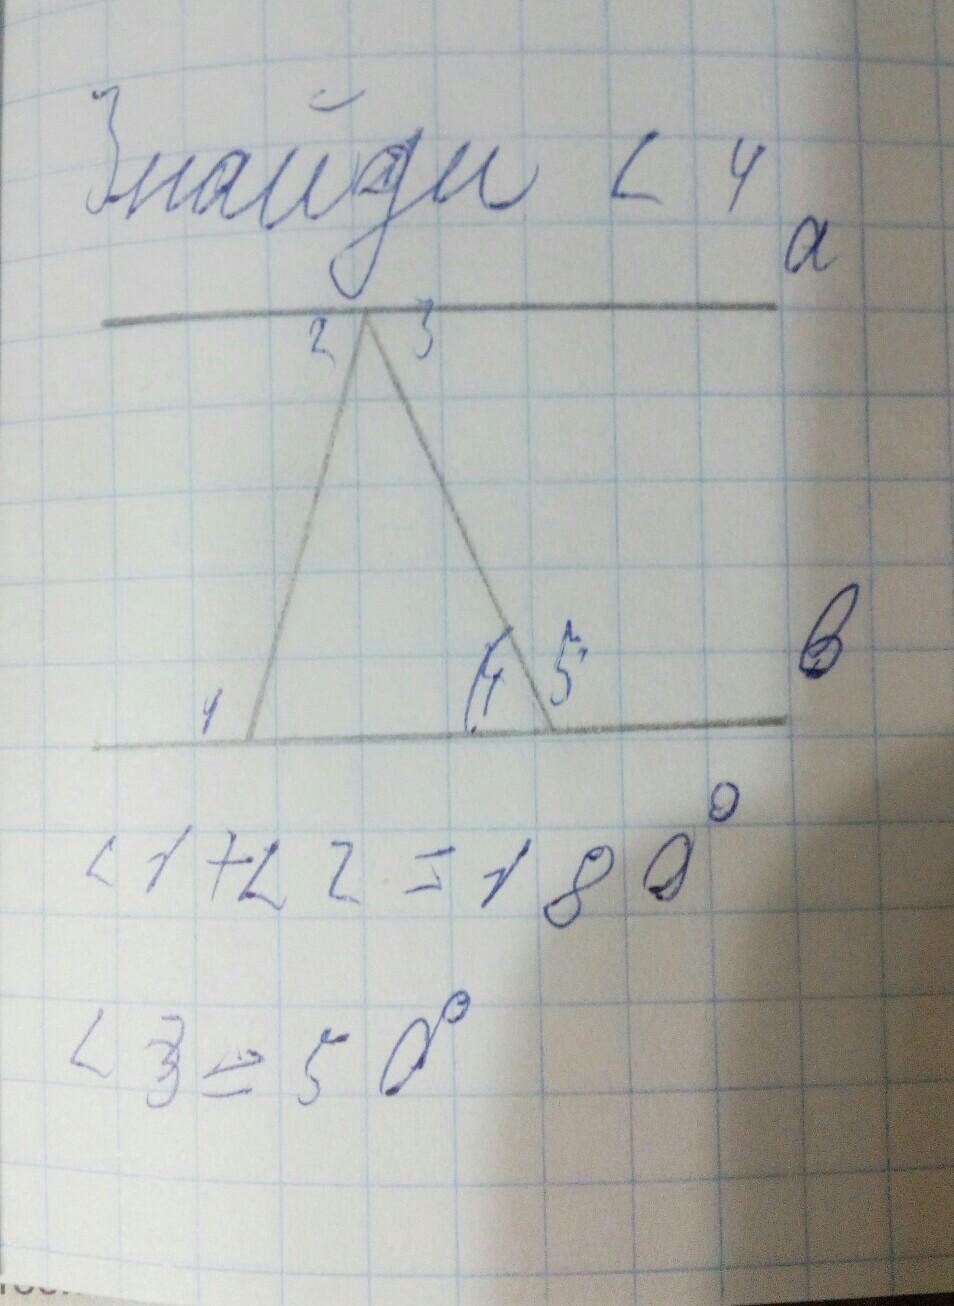 Знайди ∠ 4
a
2 3
в
1 4 5
∠1+∠2=180°
∠3=50°